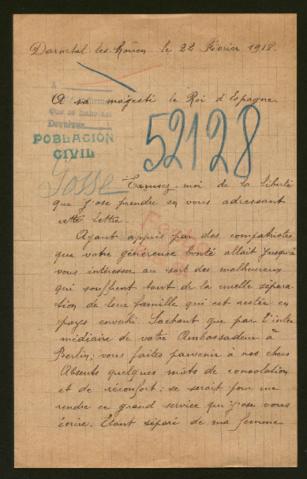 Darnétal les Rouen le 22 Février 1918.
A sa majesté le Roi d'Espagne
POBLACIÓN
CIVIL
52128
Gosse
Excusez moi de la liberté
que j'ose prendre en vous adressant
cette lettre.
Ayant appris par des compatriotes
que votre généreuse bonté allait jusqu'à
vous intéresser au sort des malheureux
qui souffrent tant de la cruelle sépara
tion de leur famille qui est restée en
pays envahi. Sachant que par l'inter
médiaire de votre Ambassadeur à
Berlin; vous faites parvenir à nos chers
Absents quelques mots de consolation
et de réconfort; ce serait pour me
rendre ce grand service que j'ose vous
écrire. Etant séparé de ma femme